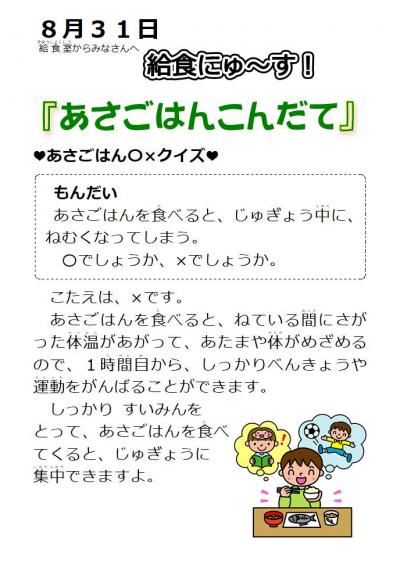 ８月３１日
給食室からみなさんへ
給食にゅ～す！
『あさごはんこんだて』
♥あさごはん〇×クイズ♥
もんだい
あさごはんを食べると、じゅぎょう中に、
ねむくなってしまう。
〇でしょうか、×でしょうか。
こたえは、×です。
あさごはんを食べると、ねている間にさが
った体温があがって、あたまや体がめざめる
ので、１時間目から、しっかりべんきょうや
運動をがんばることができます。
しっかり すいみんを
とって、あさごはんを食べ
てくると、じゅぎょうに
集中できますよ。